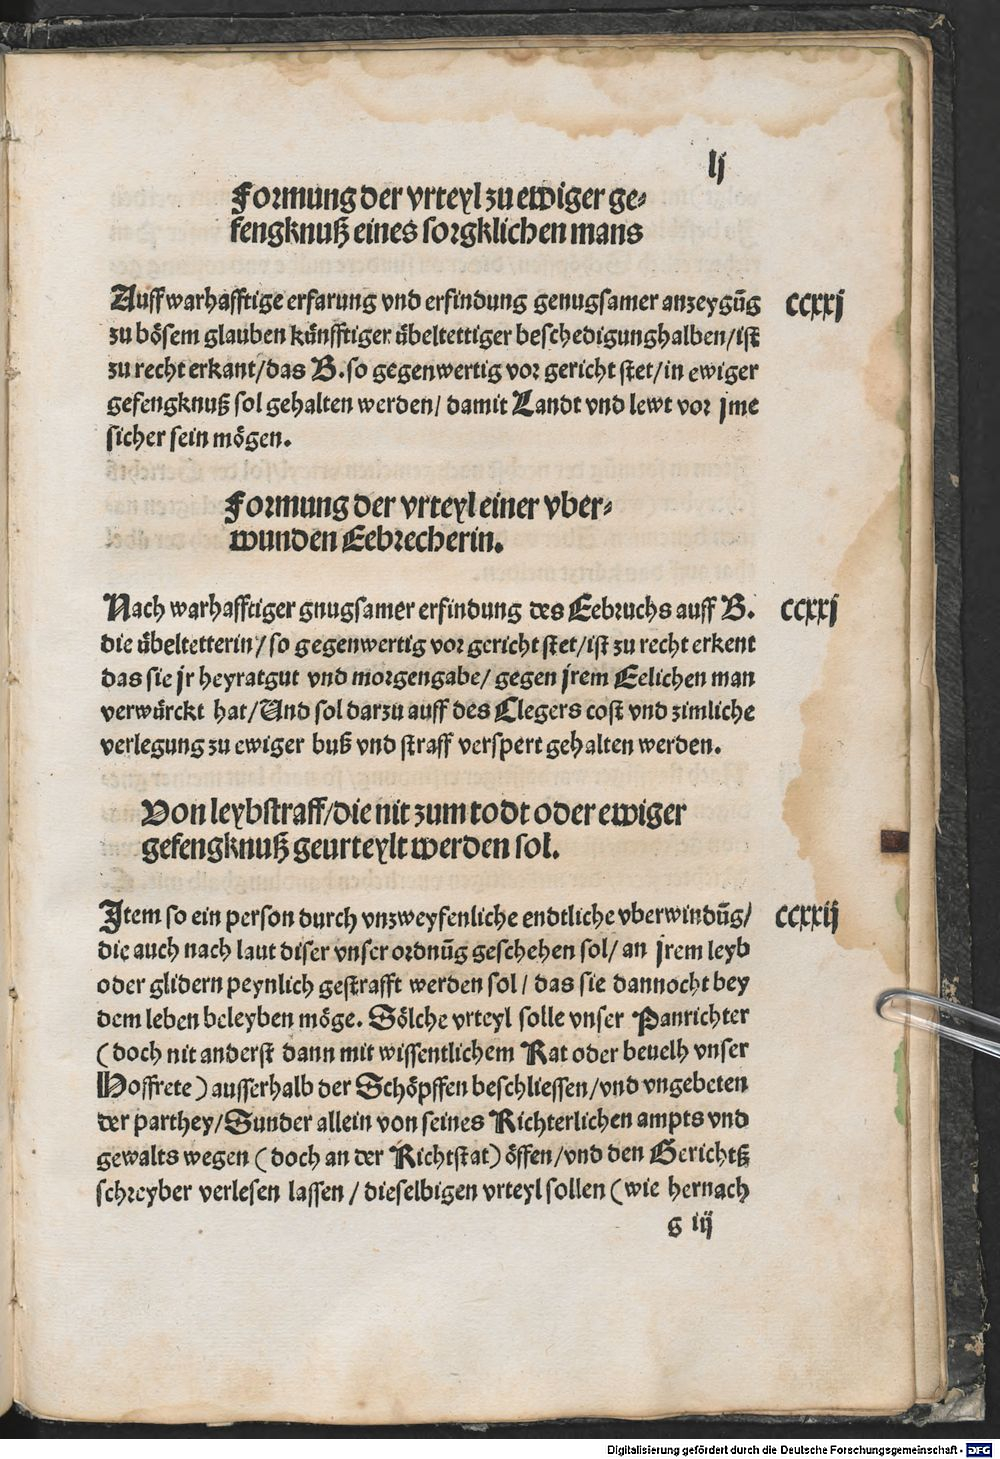 lj
Formung der vrteyl zu ewiger ge⸗
fengknuß eines sorgklichen mans
Auff warhafftige erfarung vnd erfindung genugsamer anzeygūg
ccxxj
zu bösem glauben künfftiger übeltettiger beschedigunghalben/ist
zu recht erkant/das B. so gegenwertig vor gericht stet/in ewiger
gefengknuß sol gehalten werden/ damit Landt vnd lewt vor jme
sicher sein mögen.
Formung der vrteyl einer vber⸗
wunden Eebrecherin.
Nach warhafftiger gnugsamer erfindung des Eebruchs auff B.
ccxxj
die übeltetterin/ so gegenwertig vor gericht stet/ist zu recht erkent
das sie jr heyratgut vnd morgengabe/ gegen jrem Eelichen man
verwürckt hat/Und sol darzu auff des Clegers cost vnd zimliche
verlegung zu ewiger buß vnd straff verspert gehalten werden.
Von leybstraff/die nit zum todt oder ewiger
gefengknuß geurteylt werden sol.
Item so ein person durch vnzweyfenliche endtliche vberwindūg/
ccxxij
die auch nach laut diser vnser ordnūg geschehen sol/ an jrem leyb
oder glidern peynlich gestrafft werden sol/ das sie dannocht bey
dem leben beleyben möge. Sölche vrteyl solle vnser Panrichter
(doch nit anderst dann mit wissentlichem Rat oder beuelh vnser
Hoffrete) ausserhalb der Schöpffen beschliessen/vnd vngebeten
der parthey/Sunder allein von seines Richterlichen ampts vnd
gewalts wegen (doch an der Richtstat) öffen/vnd den Gerichtß
schreyber verlesen lassen/ dieselbigen vrteyl sollen (wie hernach
g iij
Digitalisierung gefördert durch die Deutsche Forschungsgemeinschaft - DFG